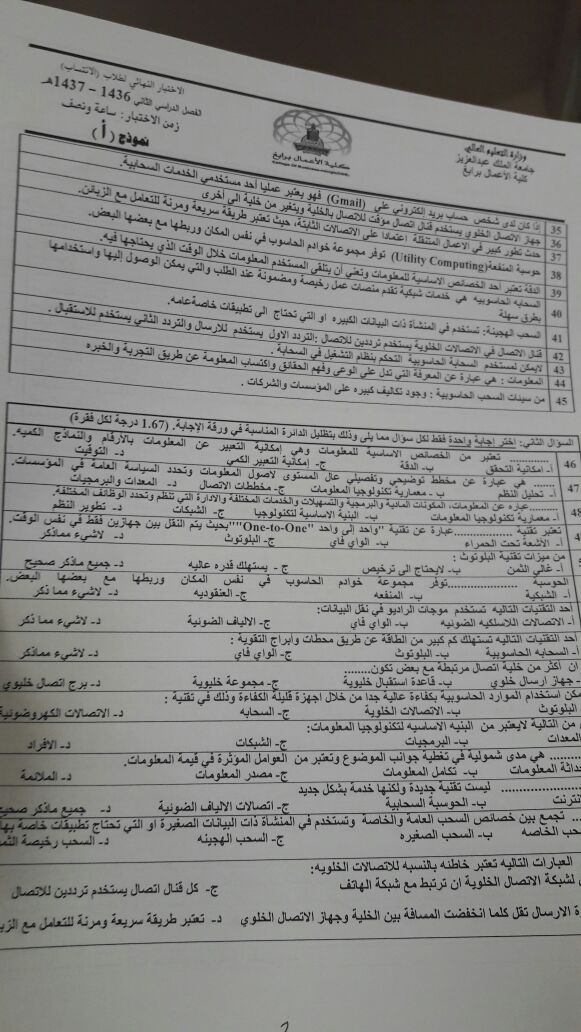 وزارة التعليم العالي
جامعة الملك عبدالعزيز
كلية الأعمال برابغ
كلية الأعمال برابغ
الاختبار النهائي لطلاب (الانتساب)
الفصل الدراسي الثاني 1436 – 1437هـ
زمن الاختبار: ساعة ونصف
نموذج ( أ )
35 إذا كان لدى شخص حساب بريد إلكتروني على (Gmail) فهو يعتبر عمليا أحد مستخدمي الخدمات السحابية.
36 جهاز الاتصال الخلوي يستخدم قنال اتصال مؤقت للاتصال بالخلية ويتغير من خلية الى أخرى
37 حدث تطور كبير في الاعمال المتنقلة اعتمادا على الاتصالات الثابتة، حيث تعتبر طريقة سريعة ومرنة للتعامل مع الزبائن.
38 حوسبة المنفعة(Utility Computing) توفر مجموعة خوادم الحاسوب في نفس المكان وربطها مع بعضها البعض.
39 الدقة تعتبر أحد الخصائص الاساسية للمعلومات وتعني أن يتلقى المستخدم المعلومات خلال الوقت الذي يحتاجها فيه.
40 السحابه الحاسوبيه هي خدمات شبكية تقدم منصات عمل رخيصة ومضمونة عند الطلب والتي يمكن الوصول إليها واستخدامها
بطرق سهلة
41 السحب الهجينة: تستخدم في المنشأة ذات البيانات الكبيره او التي تحتاج الى تطبيقات خاصةعامه.
42 قنال الاتصال في الاتصالات الخلوية يستخدم ترددين للاتصال :التردد الاول يستخدم للارسال والتردد الثاني يستخدم للاستقبال .
43 لايمكن لمستخدم السحابة الحاسوبية التحكم بنظام التشغيل في السحابة .
44 المعلومات : هي عبارة عن المعرفة التي تدل على الوعي وفهم الحقائق واكتساب المعلومة عن طريق التجربة والخبره
45 من سيئات السحب الحاسوبية : وجود تكاليف كبيره على المؤسسات والشركات .
السؤال الثاني: اختر إجابة واحدة فقط لكل سؤال مما يلي وذلك بتظليل الدائرة المناسبة في ورقة الإجابة. (1.67 درجة لكل فقرة)
46 ............ تعتبر من الخصائص الاساسية للمعلومات وهي إمكانية التعبير عن المعلومات بالأرقام والنماذج الكميه.
أ- امكانية التحقق ب- الدقة ج- إمكانية التعبير الكمي د- التوقيت
47 ..... هي عبارة عن مخطط توضيحي وتفصيلي عال المستوى لاصول المعلومات وتحدد السياسة العامة في المؤسسات.
أ- تحليل النظم ب - معمارية تكنولوجيا المعلومات ج- مخططات الاتصال د- المعدات والبرمجيات
48 .......... عباره عن المعلومات، المكونات المادية والبرمجية والتسهيلات والخدمات المختلفة والادارة التي تنظم وتحدد الوظائف المختلفة.
أ- معمارية تكنولوجيا المعلومات ب- البنية الاساسية لتكنولوجيا ج- الشبكات د- تطوير النظم
تعتبر تقنية ..........عبارة عن تقنية "واحد إلى واحد "One-to-One""بحيث يتم النقل بين جهازين فقط في نفس الوقت.
أ- الأشعة تحت الحمراء ب- الواي فاي ج- البلوتوث د- لاشيء مماذكر
من ميزات تقنية البلوتوث :
أ- غالي الثمن ب- لايحتاج الى ترخيص ج- يستهلك قدره عاليه د- جميع ماذكر صحيح
الحوسبة ..................توفر مجموعة خوادم الحاسوب في نفس المكان وربطها مع بعضها البعض.
أ- الشبكية ب- المنفعه ج- العنقوديه د- لاشيء مما ذكر
أحد التقنيات التاليه تستخدم موجات الراديو في نقل البيانات:
أ- الاتصالات اللاسلكيه الضوئيه ب- الواي فاي ج- الالياف الضوئية د- لاشيء مما ذكر
أحد التقنيات التاليه تستهلك كم كبير من الطاقة عن طريق محطات وأبراج التقوية :
أ- السحابه الحاسوبية ب- البلوتوث ج- الواي فاي د- لاشيء مماذكر
ان أكثر من خلية اتصال مرتبطة مع بعض تكون.........
- جهاز ارسال خلوي ب- قاعدة استقبال خليوية ج- مجموعة خليوية د- برج اتصال خليوي
مكن استخدام الموارد الحاسوبية بكفاءة عالية جدا من خلال اجهزة قليلة الكفاءة وذلك في تقنية :
البلوتوث ب- الاتصالات الخلوية ج- السحابه د- الاتصالات الكهروضوئية
من التالية لايعتبر من البنيه الاساسيه لتكنولوجيا المعلومات:
المعدات ب- البرمجيات ج- الشبكات د- الافراد
.......... هي مدى شمولية في تغطية جوانب الموضوع وتعتبر من العوامل المؤثرة في قيمة المعلومات.
حداثة المعلومات ب- تكامل المعلومات ج- مصدر المعلومات د- الملائمة
.................. ليست تقنية جديدة ولكنها خدمة بشكل جديد
نترنت ب- الحوسبة السحابية ج- اتصالات الالياف الضوئية د- جميع ماذكر صحيح
... تجمع بين خصائص السحب العامة والخاصة وتستخدم في المنشأة ذات البيانات الصغيرة او التي تحتاج تطبيقات خاصة بها
سحب الخاصه ب- السحب الصغيره ج- السحب الهجينه د- السحب رخيصة الثمن
العبارات التاليه تعتبر خاطئه بالنسبه للاتصالات الخلويه:
لشبكة الاتصال الخلوية ان ترتبط مع شبكة الهاتف ج- كل قنال اتصال يستخدم ترددين للاتصال
ة الارسال تقل كلما انخفضت المسافة بين الخلية وجهاز الاتصال الخلوي د- تعتبر طريقة سريعة ومرنة للتعامل مع الزبا